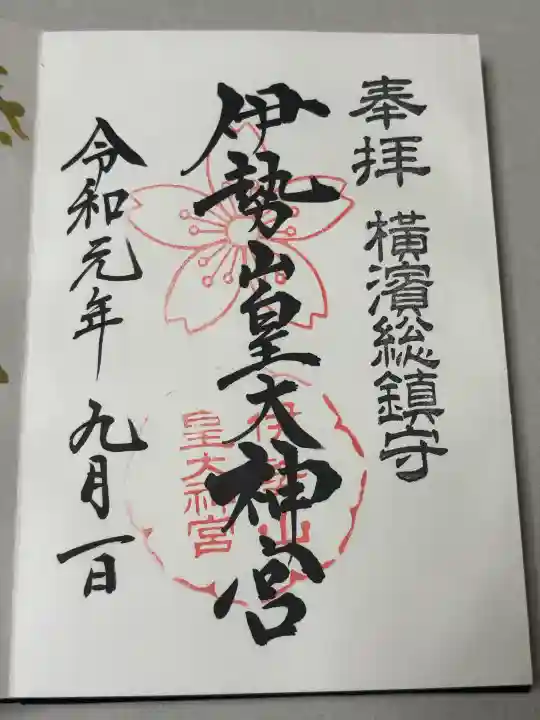 奉拝 横濱総鎮守
伊勢山皇大神宮
伊勢山
皇大神宮
令和元年 九月一日